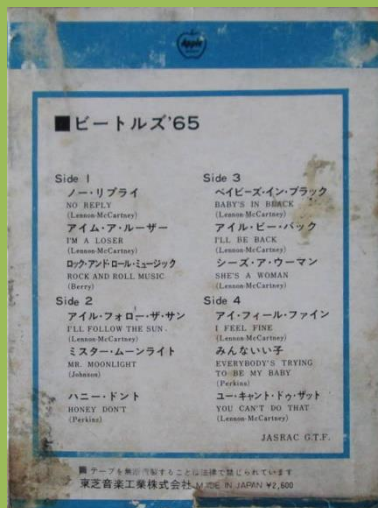 Apple
■ビートルズ'65
Side 1
ノー・リプライ
NO REPLY
(Lennon-McCartney)
アイム・ア・ルーザー
I'M A LOSER
(Lennon-McCartney)
ロック・アンド・ロール・ミュージック
ROCK AND ROLL MUSIC
(Berry)
Side 2
アイル・フォロー・ザ・サン
I'LL FOLLOW THE SUN
(Lennon-McCartney)
ミスター・ムーンライト
MR. MOONLIGHT
(Johnson)
ハニー・ドント
HONEY DON'T
(Perkins)
Side 3
ベイビーズ・イン・ブラック
BABY'S IN BLACK
(Lennon-McCartney)
アイル・ビー・バック
I'LL BE BACK
(Lennon-McCartney)
シーズ・ア・ウーマン
SHE'S A WOMAN
(Lennon-McCartney)
Side 4
アイ・フィール・ファイン
I FEEL FINE
(Lennon-McCartney)
みんないい子
EVERYBODY'S TRYING
TO BE MY BABY
(Perkins)
ユー・キャント・ドゥ・ザット
YOU CAN'T DO THAT
(Lennon-McCartney)
JASRAC G.T.F.
■テープを無断複製することは法律で禁じられています
東芝音楽工業株式会社 MADE IN JAPAN ¥2,600